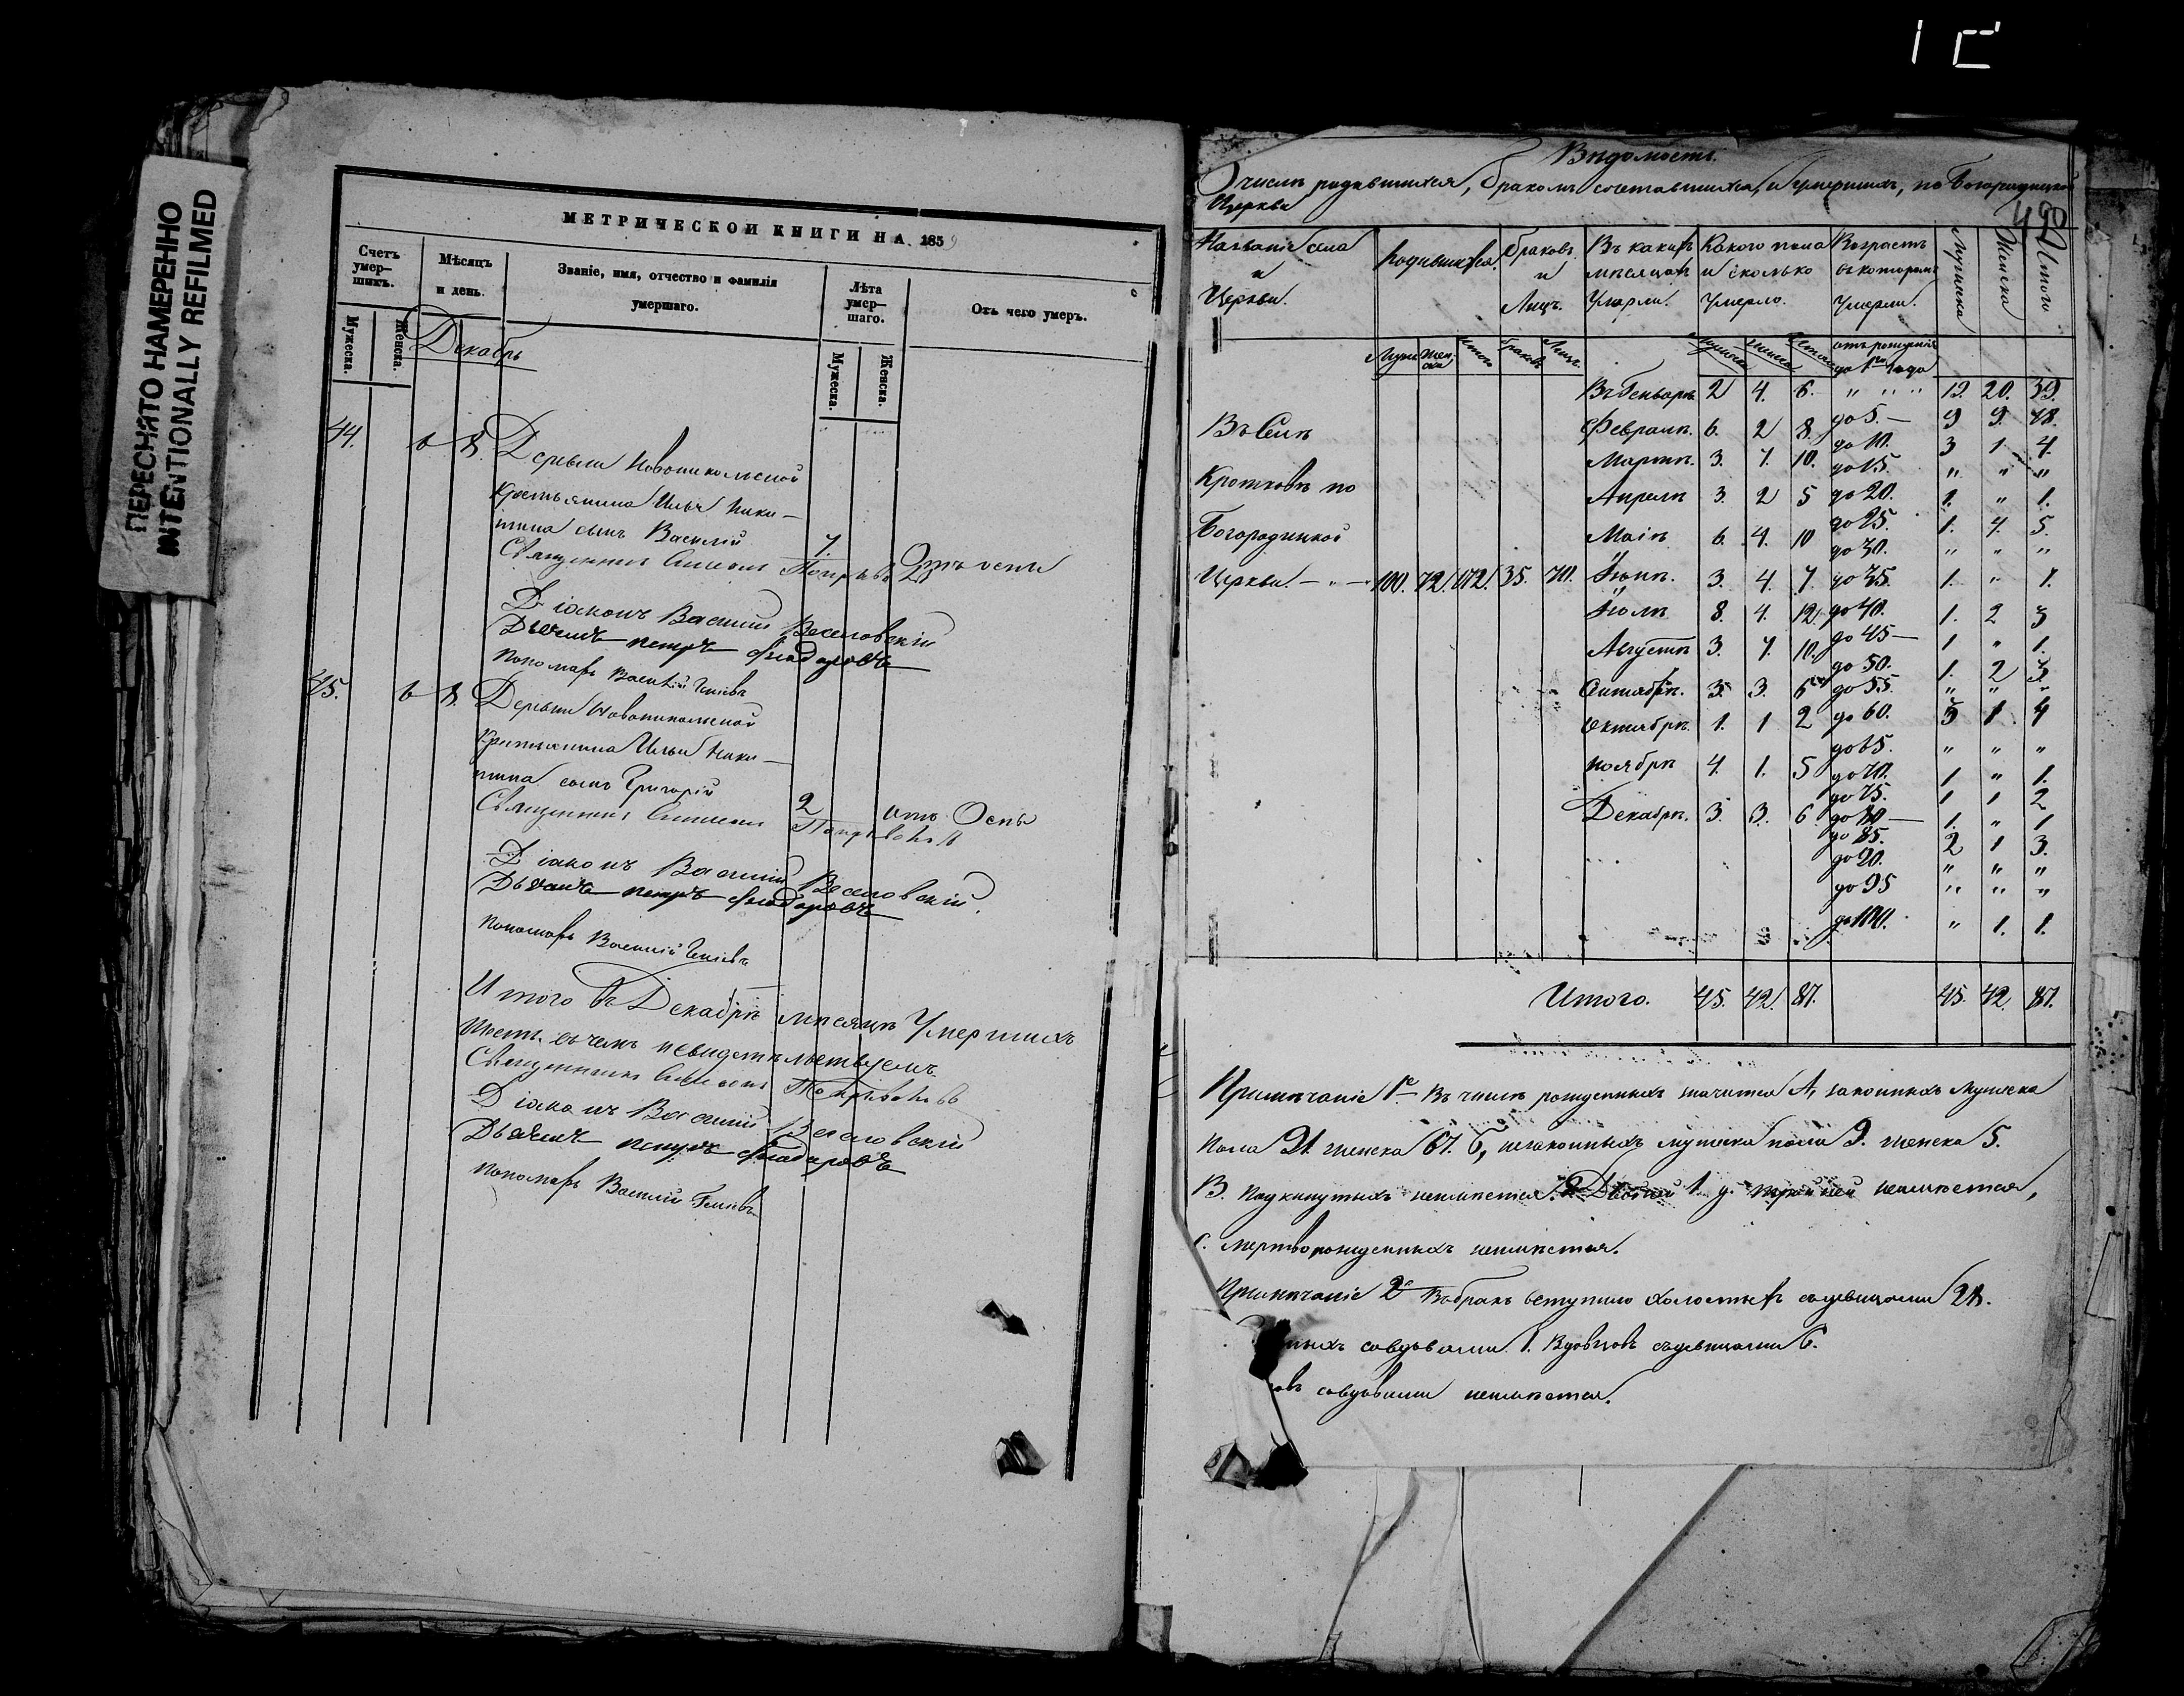 ПЕРЕСНЯТО НАМЕРЕННО
INTENTIONALLY REFILMED
МЕТРИЧЕСКОИ КНИГИ НА 1859
Счетъ умер-шихъ.
Мѣсяцъ и день.
Званіе, имя, отчество и фамилія умершаго.
Лѣта умер-шаго.
Отъ чего умеръ.
Мужеска.
Женска.
Мужеска.
Женска.
Декабрь
44. 6 8. Деревни Новоникольской
крестьянина Ильи Ники-
тина сынъ Василій 7.
Священникъ Отъ оспы
Діаконъ Василій Веселовскій
Дьячекъ петръ
Пономарь Василій
45. 6 8. Деревни Новоникольской
Крестьянина Ильи Ники-
тина сынъ Григорій
Священникъ 2 отъ Оспы
Діаконъ Василій Веселовскій.
Дьячекъ петръ
Пономарь Василій
Итого въ Декабрѣ мѣсяцѣ Умершихъ
Шесть. въ чемъ
Священникъ
Діаконъ Василій Веселовскій
Дьячекъ петръ
Пономарь Василій
Вѣдомость.
О числѣ родившихся, бракомъ сочетавшихся, и Умершихъ, по Богородицкой
Церкви
490
Названіе села и Церкви.
Родившихся.
Браковъ и Лицъ.
Въ какихъ мѣсяцахъ Умерли.
Какого пола и сколько Умерло.
Возрастъ въ которомъ Умерли.
Мужеска
Женска
Итого
Муже Жен-ска Итого браковъ Лицъ. отъ рожденія до 1го года
Въ Генварѣ 2 4. 6. " " " 19. 20. 39.
Въ Селѣ Февралѣ. 6. 2 8. до 5.— 9 9. 18.
Мартѣ. 3. 7. 10. до 10. 3 1. 4.
до 15. " " "
Кротковѣ по Апрелѣ 3. 2 5 до 20. 1. " 1.
до 25. 1. 4. 5.
Богородицкой Маіѣ 6. 4. 10 до 30. " " "
Церкви — " — 100. 72. 172. 35. 70. Іюнѣ. 3. 4. 7. до 35. 1. " 1.
Іюлѣ 8. 4. 12. до 40. 1. 2 3
Августѣ 3. 7. 10. до 45— 1 " 1.
до 50. 1. 2 3.
Сентябрѣ. 3. 3. 6 до 55. " " "
Октябрѣ. 1. 1 2 до 60. 3 1 4
до 65. " " "
Ноябрѣ 4. 1. 5 до 70. 1 " 1.
до 75. 1 1 2
Декабрѣ. 3. 3. 6 до 80— 1. " 1
до 85. 2 1 3.
до 90. " " "
до 95 " " "
до 100. " 1. 1.
Итого. 45. 42. 87. 45. 42. 87.
Примѣчаніе 1е Въ числѣ рожденныхъ значится А, законныхъ мужеска
пола 91. женска 67. Б, незаконныхъ мужеска пола 9. женска 5.
В. Подкинутыхъ неимѣется. Двойней 1. тройней неимѣется,
мертворожденныхъ неимѣется.
Примѣчаніе 2е Въ бракъ вступило Холостыхъ съ дѣвицами 28.
ныхъ со вдовами 1. Вдовцовъ съ дѣвицами 6.
овъ со вдовами неимѣется.